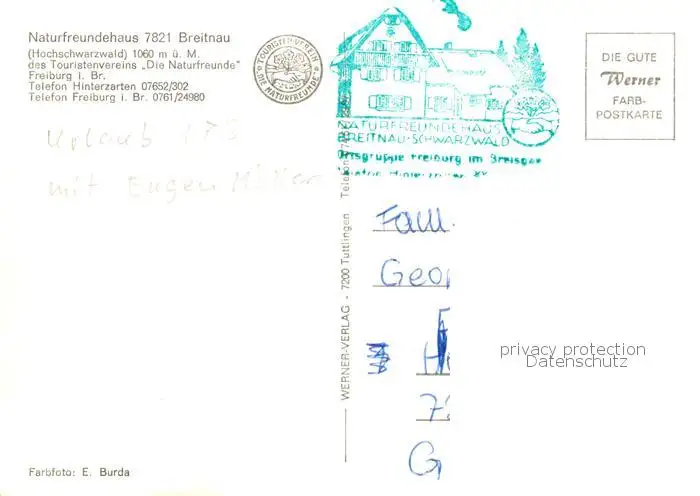 Naturfreundehaus 7821 Breitnau
(Hochschwarzwald) 1060 m ü. M.
des Touristenvereins „Die Naturfreunde"
Freiburg i. Br.
Telefon Hinterzarten 07652/302
Telefon Freiburg i. Br. 0761/24980
TOURISTEN-VEREIN
"DIE NATURFREUNDE"
NATURFREUNDEHAUS
BREITNAU-SCHWARZWALD
Ortsgruppe Freiburg im Breisgau
DIE GUTE
Werner
FARB-
POSTKARTE
Urlaub
mit Eugen
WERNER-VERLAG - 7200 Tuttlingen Telefon
Fam.
Geor
H
7
G
privacy protection
Datenschutz
Farbfoto: E. Burda